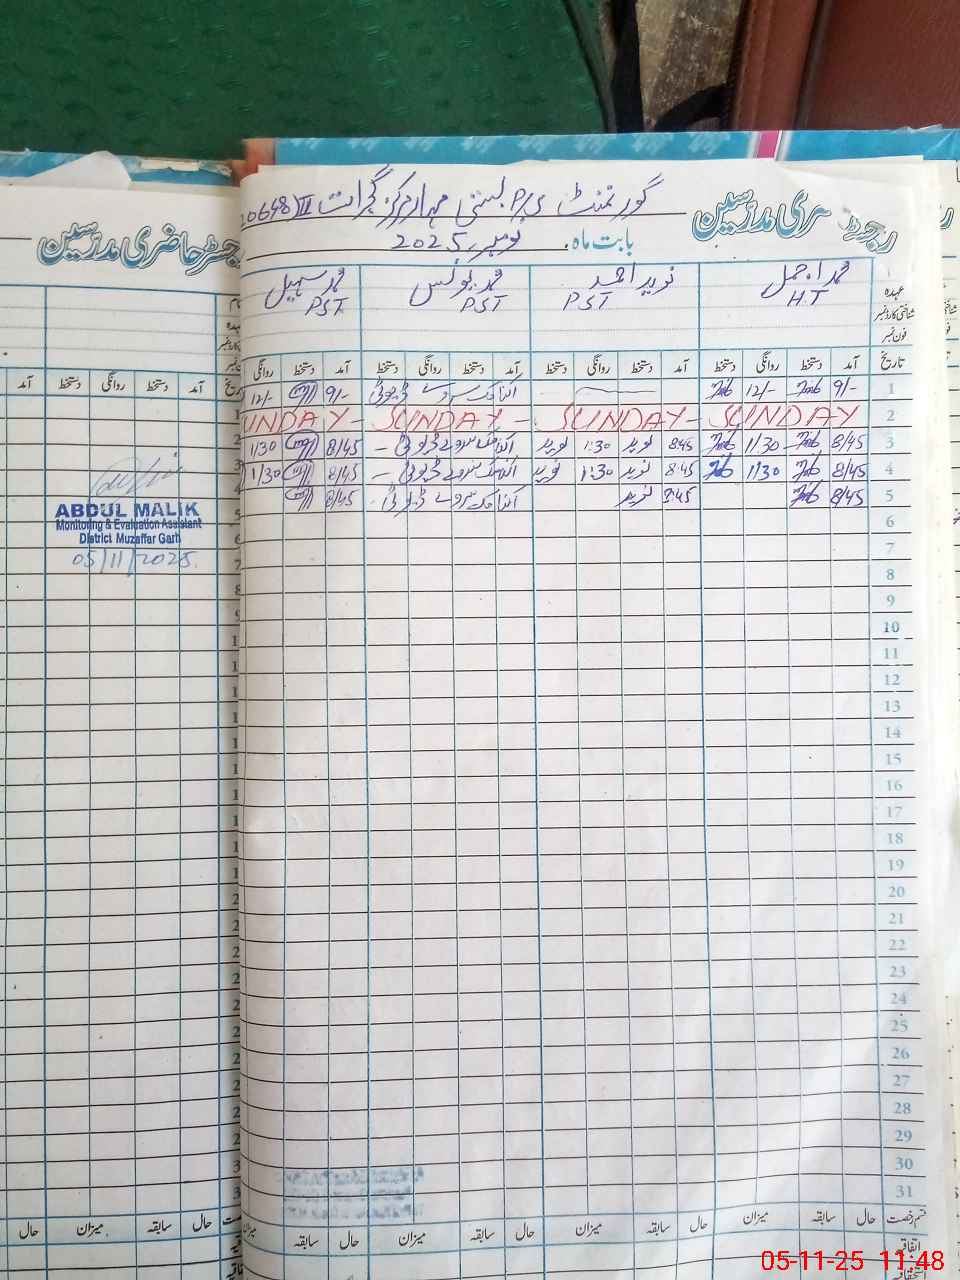 گورنمنٹ P/S بستی مہار مرکز گجرات
رجسٹر حاضری مدرسین
بابت ماہ نومبر 2025
رجسٹر حاضری مدرسین
عہدہ
شناختی کارڈ نمبر
فون نمبر
محمد اجمل
HT
نوید احمد
PST
محمد یونس
PST
محمد سہیل
PST
تاریخ آمد دستخط روانگی دستخط آمد دستخط روانگی دستخط آمد دستخط روانگی دستخط آمد دستخط روانگی
آمد دستخط روانگی دستخط آمد
1 9/- 12/- 9/- 12/-
2 SUNDAY - SUNDAY - SUNDAY - SUNDAY
3 8/45 1/30 8:45 نوید 1:30 نوید 8/45 1/30
4 8/45 1/30 8:45 نوید 1:30 نوید 8/45 1/30
5 8/45 8:45 نوید 8/45
6
7
8
9
10
11
12
13
14
15
16
17
18
19
20
21
22
23
24
25
26
27
28
29
30
31
ABDUL MALIK
Monitoring & Evaluation Assistant
District Muzaffar Garh
05/11/2025
قسم رخصت حال سابقہ میزان حال سابقہ میزان حال سابقہ میزان حال سابقہ میزان
حال سابقہ میزان حال
اتفاقیہ
05-11-25 11:48